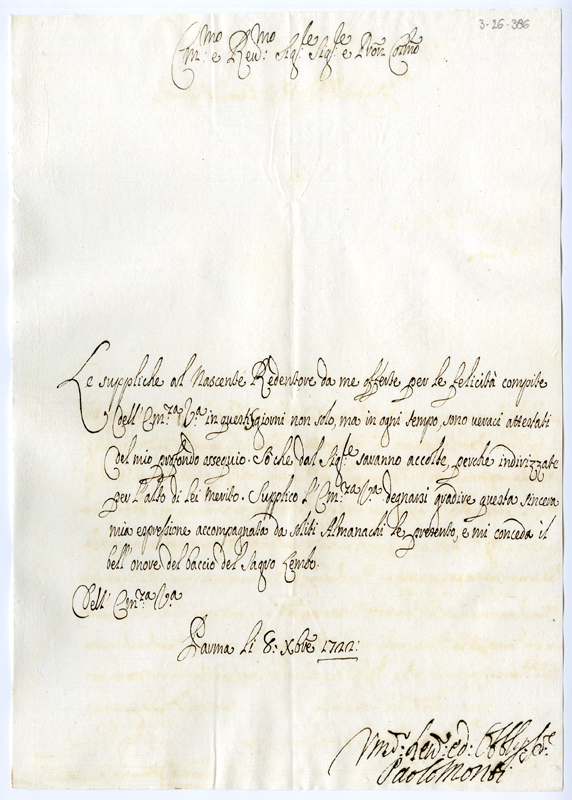 3-26-386
Em:mo e Rev:mo Sig.re Sig.re e Pron Col:mo
Le suppliche al Nascente Redentore da me offerte per le felicità compite
dell'Em:za V.a in questi giorni non solo, ma in ogni tempo, sono veraci attestati
del mio profondo ossequio. So che dal Sig.re saranno accolte, perche indirizzate
per l'alto di lei merito. Supplico l'Em:za V.a degnarsi gradire questa sincera
mia espressione accompagnata da soliti Almanachi le presento, e mi conceda il
bell'onore del baccio del Sagro Lembo.
Dell'Em:za V.a
Parma li 8: Xbre 1722:
Um:o dev:o ed: Obblig:
Paolo Monti